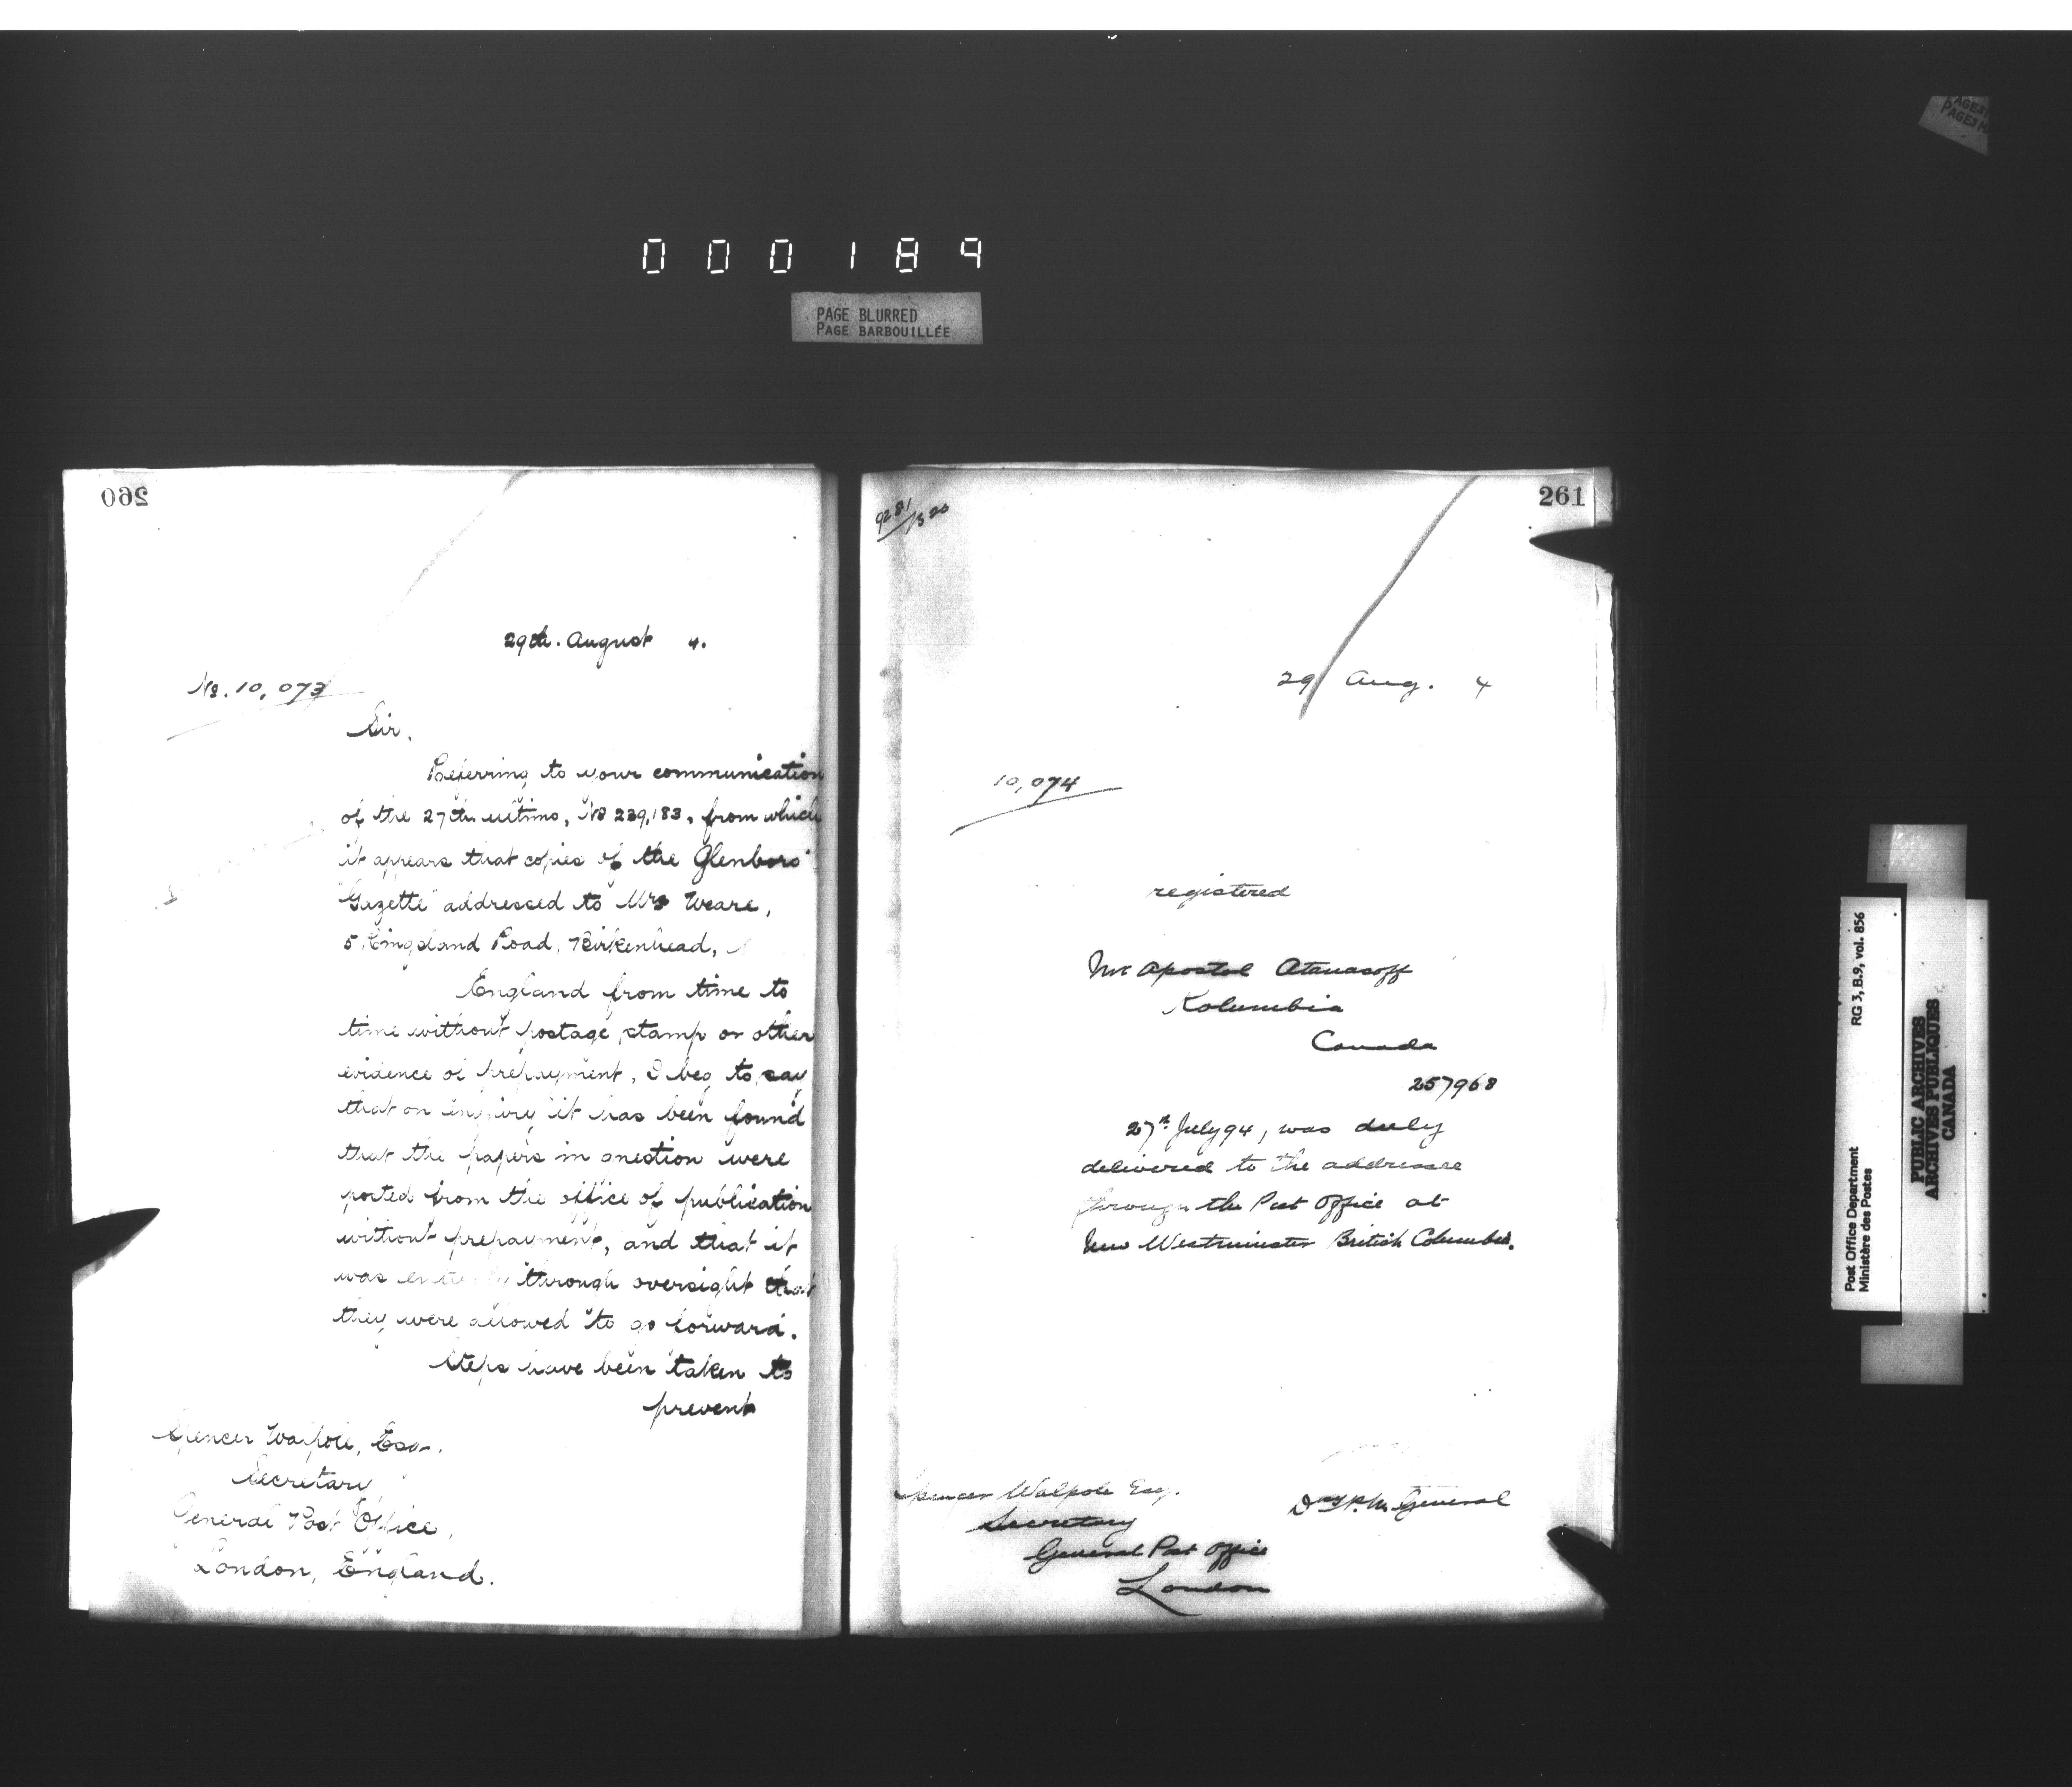 000189
PAGE BLURRED
PAGE BARBOUILLÉE
260
29th. August 4.
No. 10,073
Sir,
Referring to your communication
of the 27th. ultimo, No 239,183, from which
it appears that copies of the "Glenboro'
Gazette" addressed to Mrs Weare,
5 Kingsland Road, Birkenhead,
England from time to
time without postage stamp or other
evidence of prepayment, I beg to say
that on inquiry it has been found
that the papers in question were
posted from the office of publication
without prepayment, and that it
was entirely through oversight that
they were allowed to go forward.
Steps have been taken to
prevent
Spencer Walpole, Esq.
Secretary
General Post Office,
London, England.
261
9281/
29 Aug. 4
10,074
registered
Mr Apostol Atanasoff
Kolumbia
Canada
257968
27th July 94, was duly
delivered to the addressee
through the Post Office at
New Westminster British Columbia.
Spencer Walpole Esq.
Secretary
General Post Office
London
Dy P. M. General
Post Office Department
Ministère des Postes
RG 3, B.9, vol. 856
PUBLIC ARCHIVES
ARCHIVES PUBLIQUES
CANADA